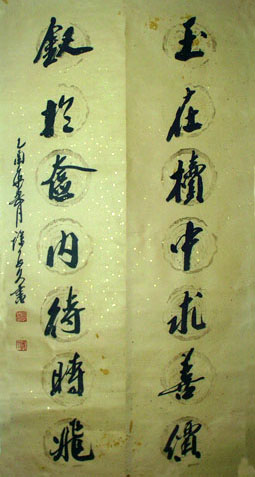 玉在櫝中求善價
釵於奩內待時飛
乙酉年 月 書